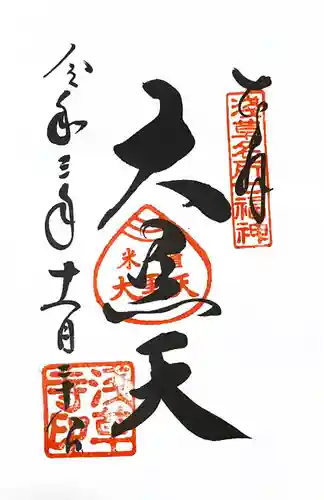 奉拝
浅草名所福神
大黒天
米
大黒天
令和三年十一月三十日
浅草寺印